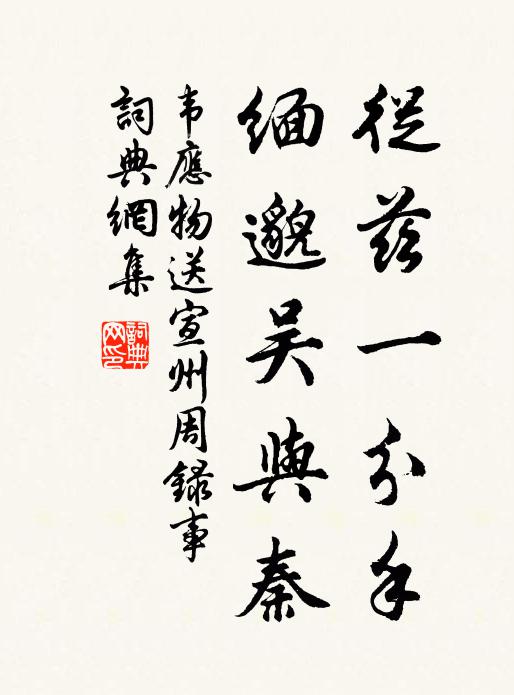 從茲一分手
緬邈吳與秦
韦應物送宣州周録事
詞典網集
詞典网印